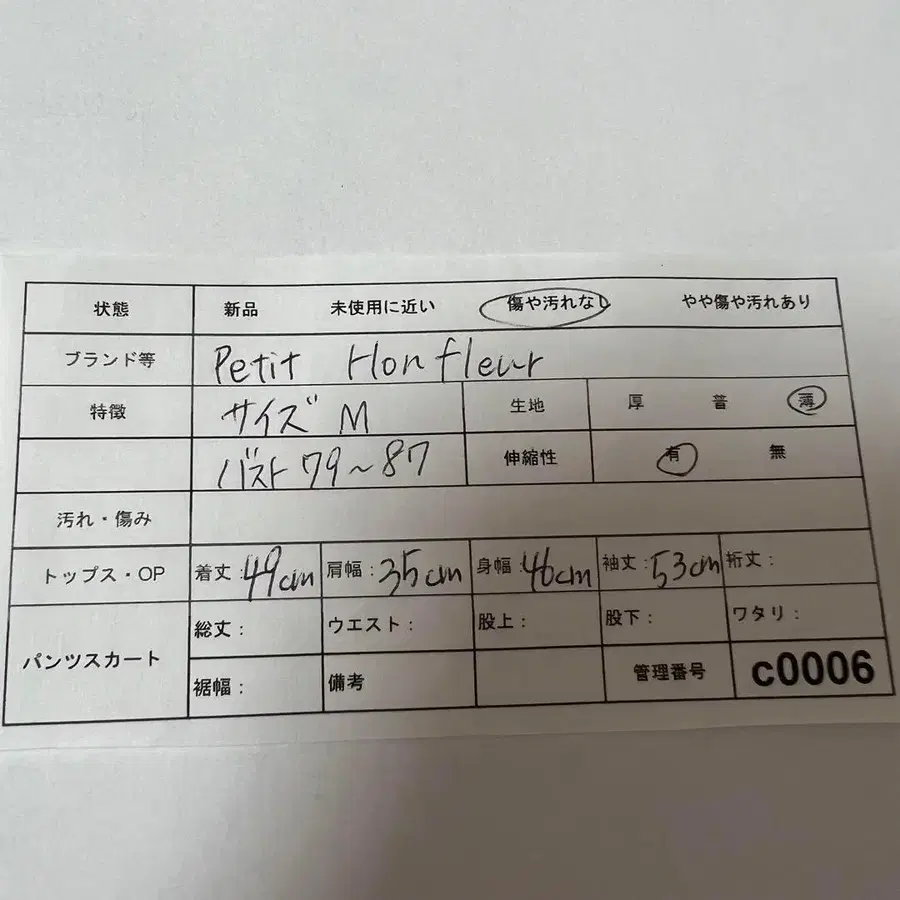 状態 新品 未使用に近い 傷や汚れなし やや傷や汚れあり
ブランド等 Petit Honfleur
特徴 サイズ M 生地 厚 普 薄
バスト 79~87 伸縮性 有 無
汚れ・傷み
トップス・OP 着丈:49cm 肩幅:35cm 身幅:46cm 袖丈:53cm 裄丈:
パンツスカート 総丈: ウエスト: 股上: 股下: ワタリ:
裾幅: 備考 管理番号 c0006